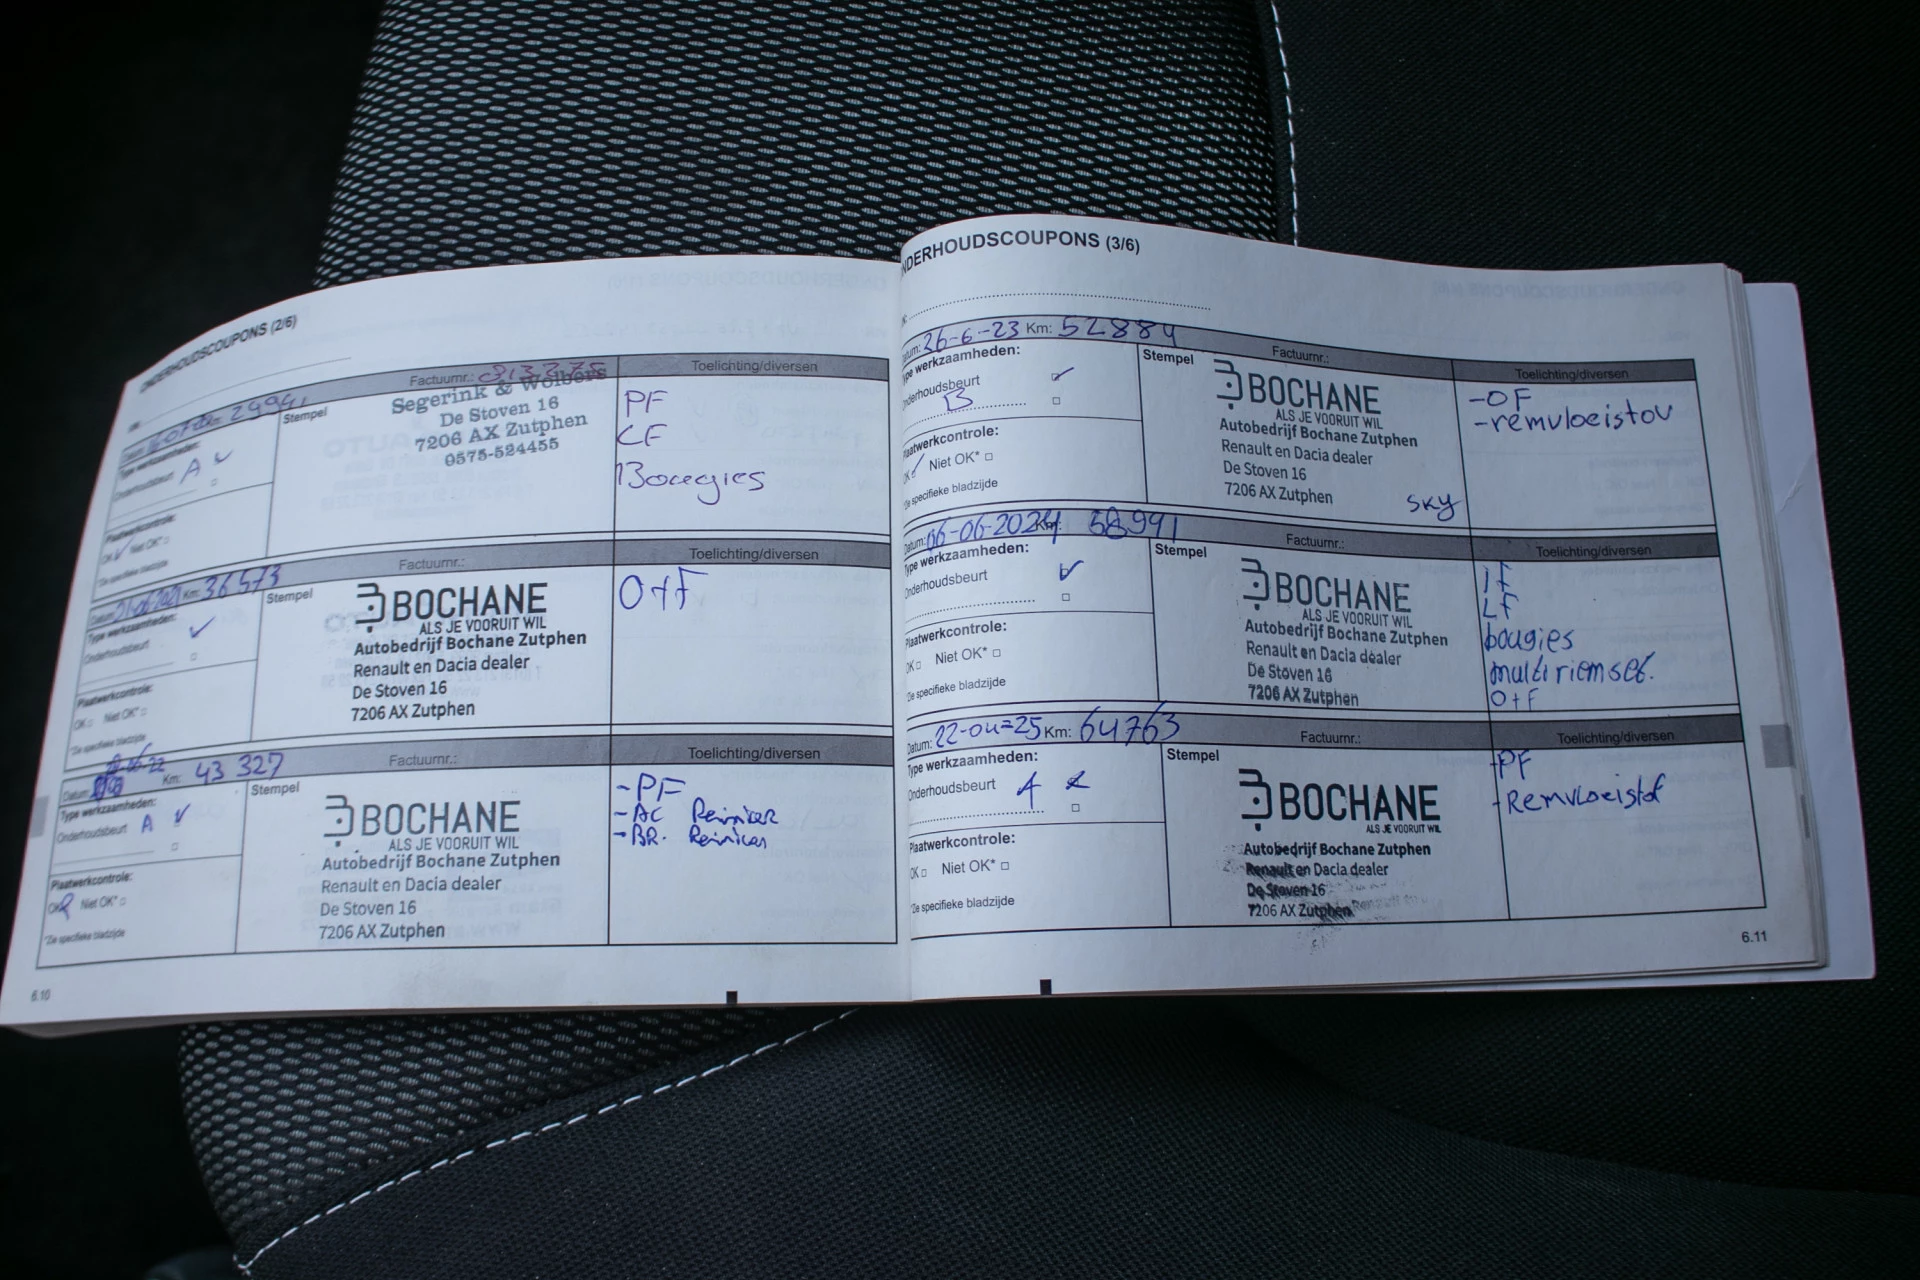 ONDERHOUDSCOUPONS (2/6)
Km: 2994
Factuurnr.:
Toelichting/diversen
Type werkzaamheden:
Onderhoudsbeurt A
Plaatwerkcontrole:
OK Niet OK*
*Zie specifieke bladzijde
Stempel
Segerink & Wolbers
De Stoven 16
7206 AX Zutphen
0575-524455
PF
LF
Bougies
Datum: Km: 36573
Factuurnr.:
Toelichting/diversen
Type werkzaamheden:
Onderhoudsbeurt
Plaatwerkcontrole:
OK Niet OK*
*Zie specifieke bladzijde
Stempel
BOCHANE
ALS JE VOORUIT WIL
Autobedrijf Bochane Zutphen
Renault en Dacia dealer
De Stoven 16
7206 AX Zutphen
O+F
Datum: Km: 43 327
Factuurnr.:
Toelichting/diversen
Type werkzaamheden:
Onderhoudsbeurt A
Plaatwerkcontrole:
OK Niet OK*
*Zie specifieke bladzijde
Stempel
BOCHANE
ALS JE VOORUIT WIL
Autobedrijf Bochane Zutphen
Renault en Dacia dealer
De Stoven 16
7206 AX Zutphen
-PF
-AC Reiniker
-BR. Reiniken
6.10
NDERHOUDSCOUPONS (3/6)
Datum: 26-6-23 Km: 52884
Factuurnr.:
Toelichting/diversen
Type werkzaamheden:
Onderhoudsbeurt
B
Plaatwerkcontrole:
OK Niet OK*
*Zie specifieke bladzijde
Stempel
BOCHANE
ALS JE VOORUIT WIL
Autobedrijf Bochane Zutphen
Renault en Dacia dealer
De Stoven 16
7206 AX Zutphen
SKY
-OF
-remvloeistov
Datum: 06-06-2024 Km: 58991
Factuurnr.:
Toelichting/diversen
Type werkzaamheden:
Onderhoudsbeurt
Plaatwerkcontrole:
OK Niet OK*
*Zie specifieke bladzijde
Stempel
BOCHANE
ALS JE VOORUIT WIL
Autobedrijf Bochane Zutphen
Renault en Dacia dealer
De Stoven 16
7206 AX Zutphen
IF
LF
bougies
multiriemset.
O+F
Datum: 22-04-25 Km: 64763
Factuurnr.:
Toelichting/diversen
Type werkzaamheden:
Onderhoudsbeurt A
Plaatwerkcontrole:
OK Niet OK*
*Zie specifieke bladzijde
Stempel
BOCHANE
ALS JE VOORUIT WIL
Autobedrijf Bochane Zutphen
Renault en Dacia dealer
De Stoven 16
7206 AX Zutphen
-PF
-Remvloeistof
6.11